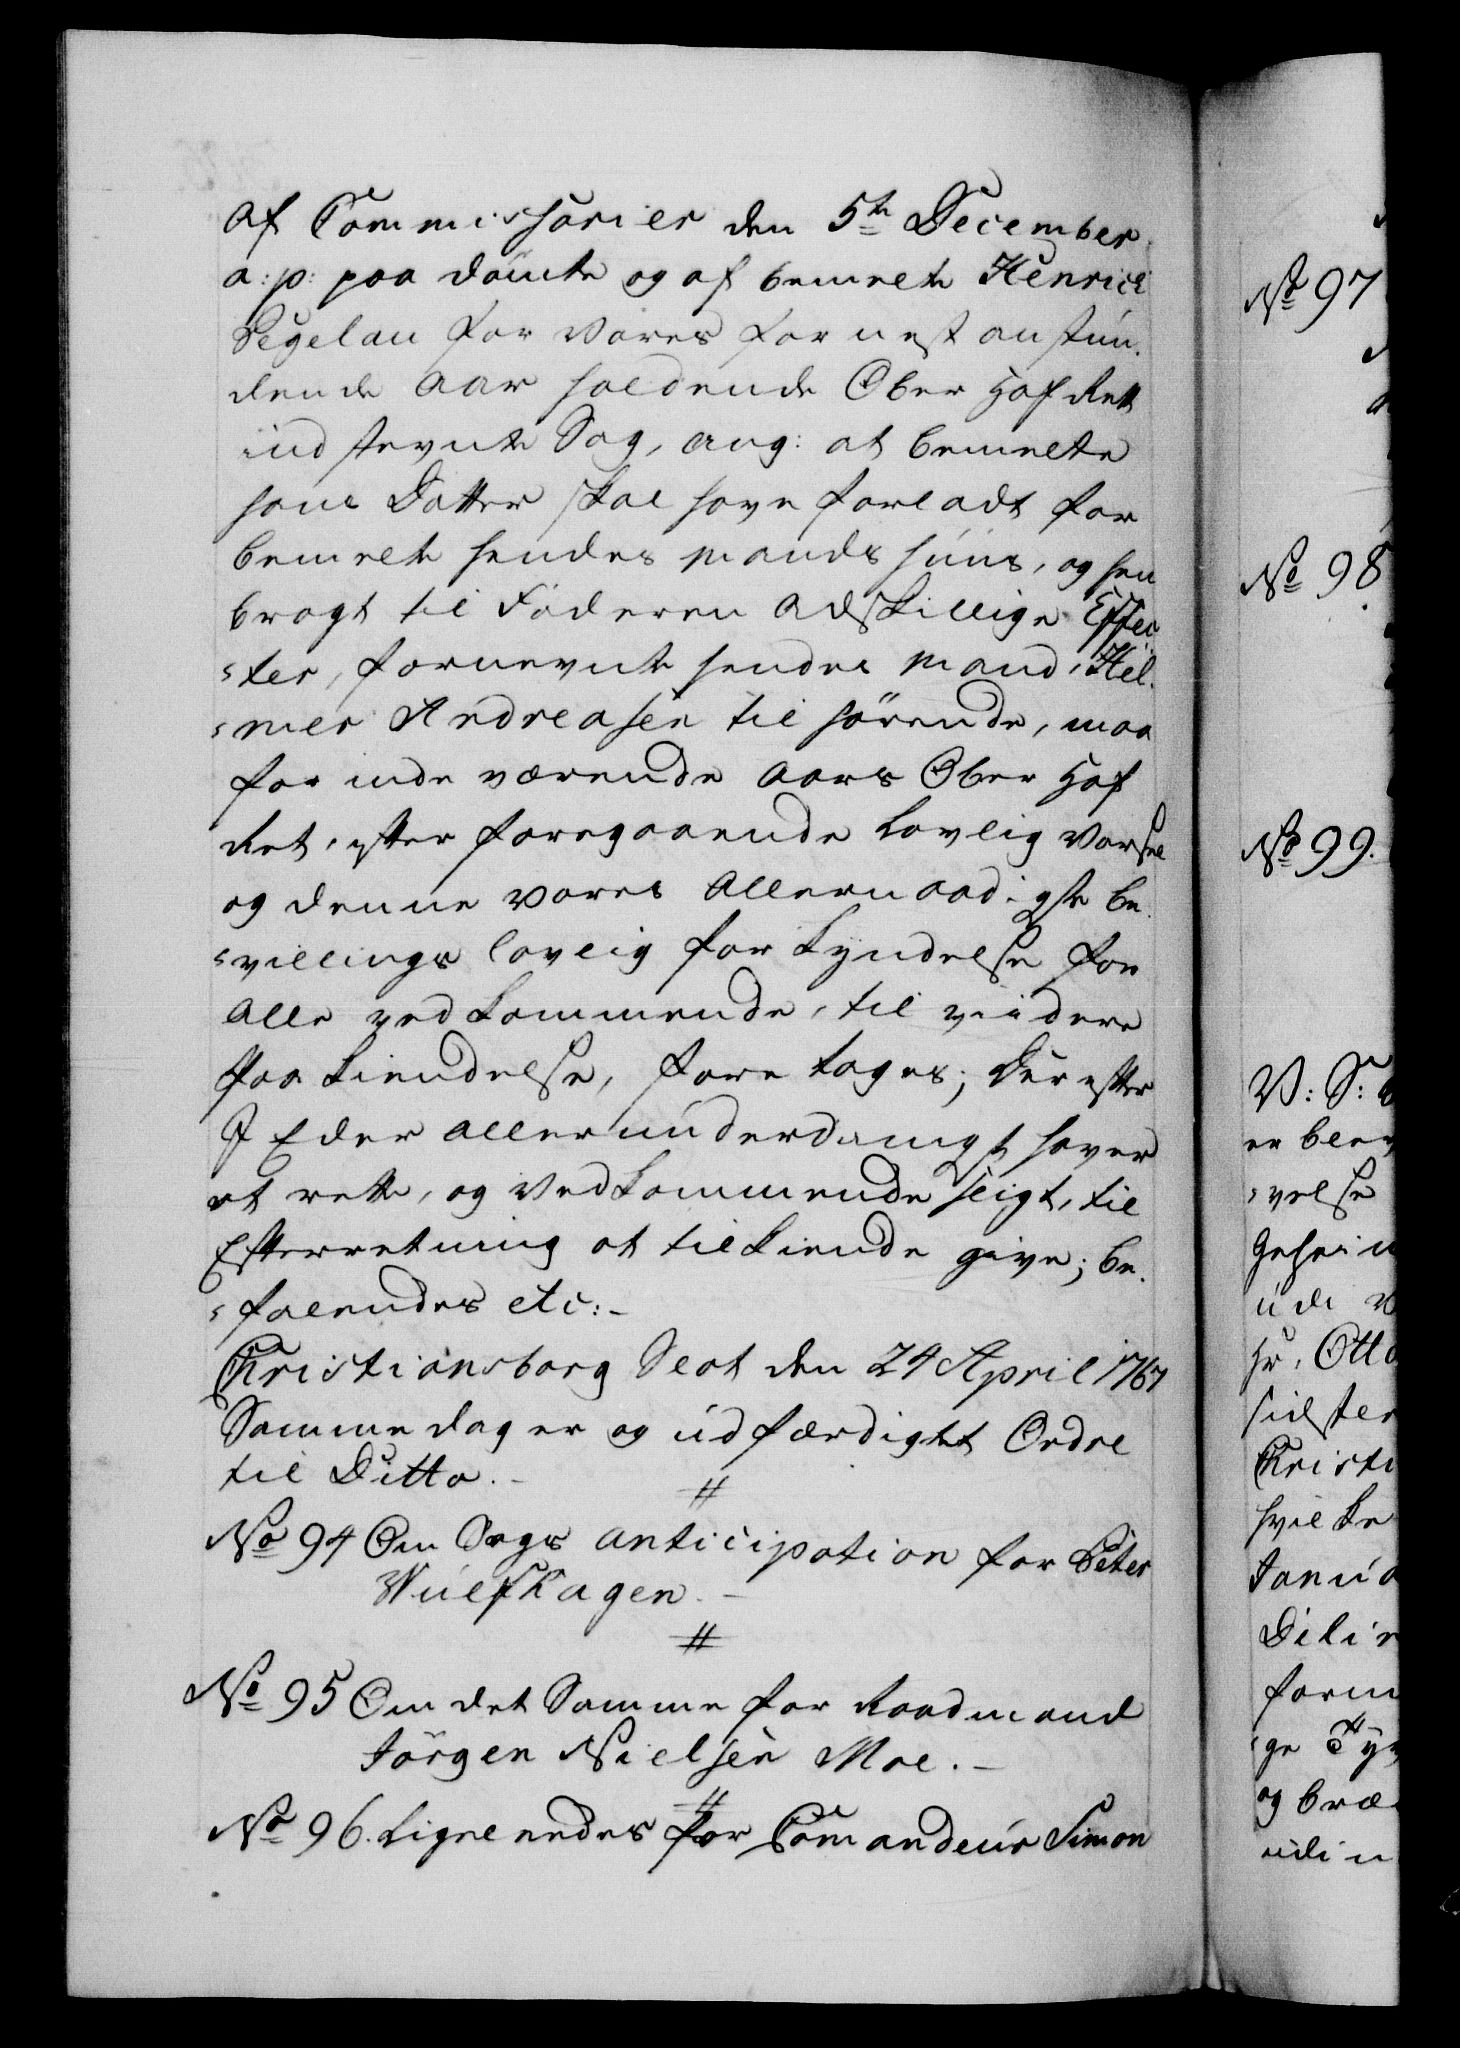 af Commissarier den 5te December
a: p: paa dömte og af bemelte Henrich
Segelau for Vores for nest anstun-
dende Aar holdende Ober Hof Rett
ind stevnte Sag, ang: at bemelte
hans Datter skal have forladt for
bemelte hendes Mands Huus, og hen
bragt til Faderen adskillige Effec-
ter, fornevnte hendes Mand, Hel-
mer Andreasen til hörende, maa
for inde værende Aars Ober Hof
Ret, efter foregaaende Lovlig Varsel
og denne Vores Allernaadigste be-
villings lovlig for Kyndelse for
Alle ved Kommende, til viidere
Paa Kiendelse, fore tages; Der efter
I Eder allerunderdanigst haver
at rette, og Vedkommende sligt, til
Efterretning at tilkiende give; be-
falendes etc:
Christiansborg Slot den 24 April 1767
Samme dag er og udfærdiget Ordre
til Ditto.
No 94 Om Sags anticipation for Peter
Wulfhagen.
No 95 Om det Samme for Raadmand
Jörgen Nielsen Moe.
No 96. Ligeleedes for Comandeur Simon
No 97
No 98
No 99.
V: S:
er blev
velse
Geheim
udi
Hr. Otto
sidster
Christi
hvilke
Janua
Dili
form
ge
og
udi